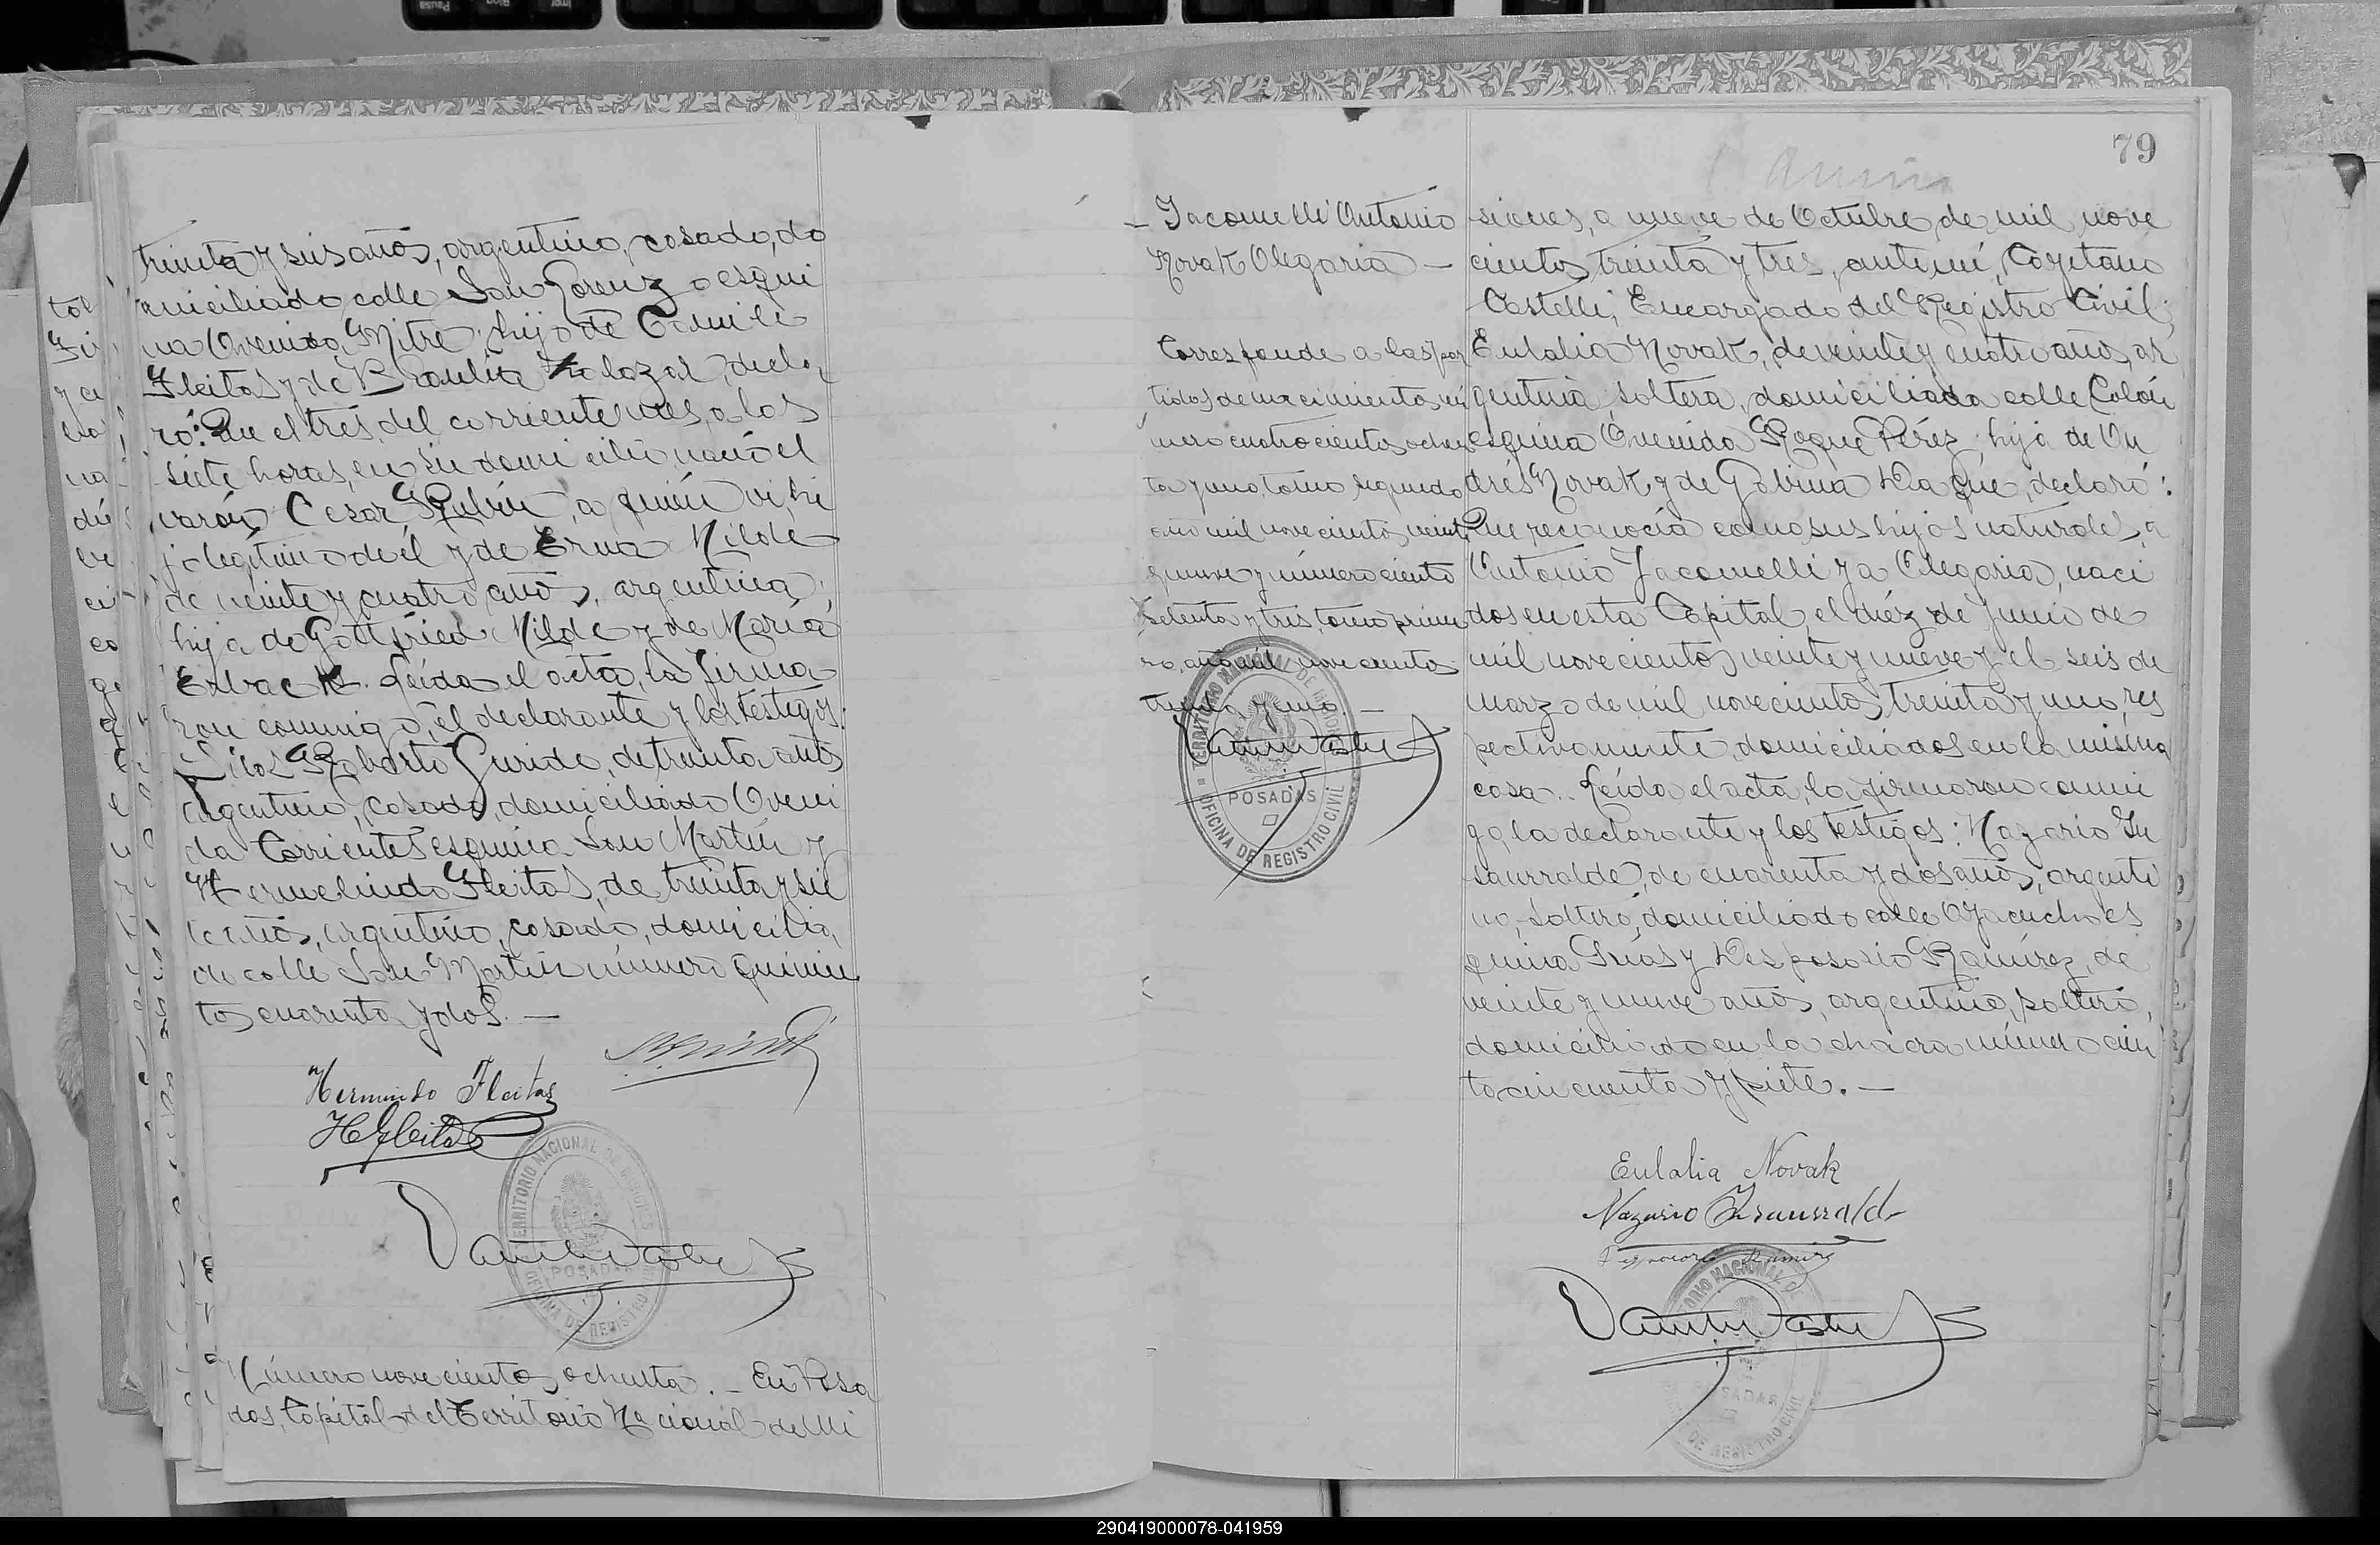 treinta y seis años, argentino, casado, do
miciliado calle San Lorenzo esqui
na Avenida Mitre, hijo de Camili
Fleitas y de Braulia Salazar, decla
ró: Que el tres del corriente mes, a las
siete horas, en su domicilio, nació el
varón Cesar Rubén, a quién ví, hi
jo legítimo de él y de Erna Milde
de veinte y cuatro años, argentina,
hija de Gottfried Milde y de María
Leída el acta, la firma
ron conmigo, el declarante y los testigos:
Roberto de treinta años
argentino, casado, domiciliado Aveni
da Corrientes esquina San Martín y
Hermelindo Fleitas, de treinta y sie
te años, argentino, casado, domicilia
do calle San Martín número quinien
tos cuarenta y dos. —
Hermindo Fleitas
HFleitas
TERRITORIO NACIONAL DE MISIONES
POSADAS
OFICINA DE REGISTRO CIVIL
Número novecientos ochenta. — En Posa
das, Capital del Territorio Nacional de Mi
79
— Jacomelli Antonio
Novak Olegaria —
Corresponde a las par
tidas de nacimientos nú
mero cuatrocientos ochen
ta y uno, tomo segundo
año mil novecientos veinti
y nueve y número ciento
setenta y tres, tomo prime
ro, año mil novecientos
treinta y uno —
TERRITORIO NACIONAL DE MISIONES
POSADAS
OFICINA DE REGISTRO CIVIL
siones, a nueve de Octubre de mil nove
cientos treinta y tres, ante mí, Cayetano
Castelli, Encargado del Registro Civil;
Eulalia Novak, de veinte y cuatro años, ar
gentina, soltera, domiciliada calle Colón
esquina Avenida Roque Pérez, hija de An
drés Novak y de Gabina declaró:
Que reconocía como sus hijos naturales, a
Antonio Jacomelli y a Olegaria, naci
dos en esta Capital, el diéz de Junio de
mil novecientos veinte y nueve y el seis de
marzo de mil novecientos treinta y uno, res
pectivamente, domiciliados en la misma
casa. - Leída el acta, la firmaron conmi
go, la declarante y los testigos: Nazario In
saurralde, de cuarenta y dos años, argenti
no, soltero, domiciliado calle Ayacucho es
quina Frías y Desposorio Ramírez, de
veinte y nueve años, argentino, soltero,
domiciliado en la chacra número cien
to cincuenta y siete. —
Eulalia Novak
Nazario Insaurralde
Ramirez
TERRITORIO NACIONAL DE
POSADAS
DE REGISTRO CIVIL
290419000078-041959